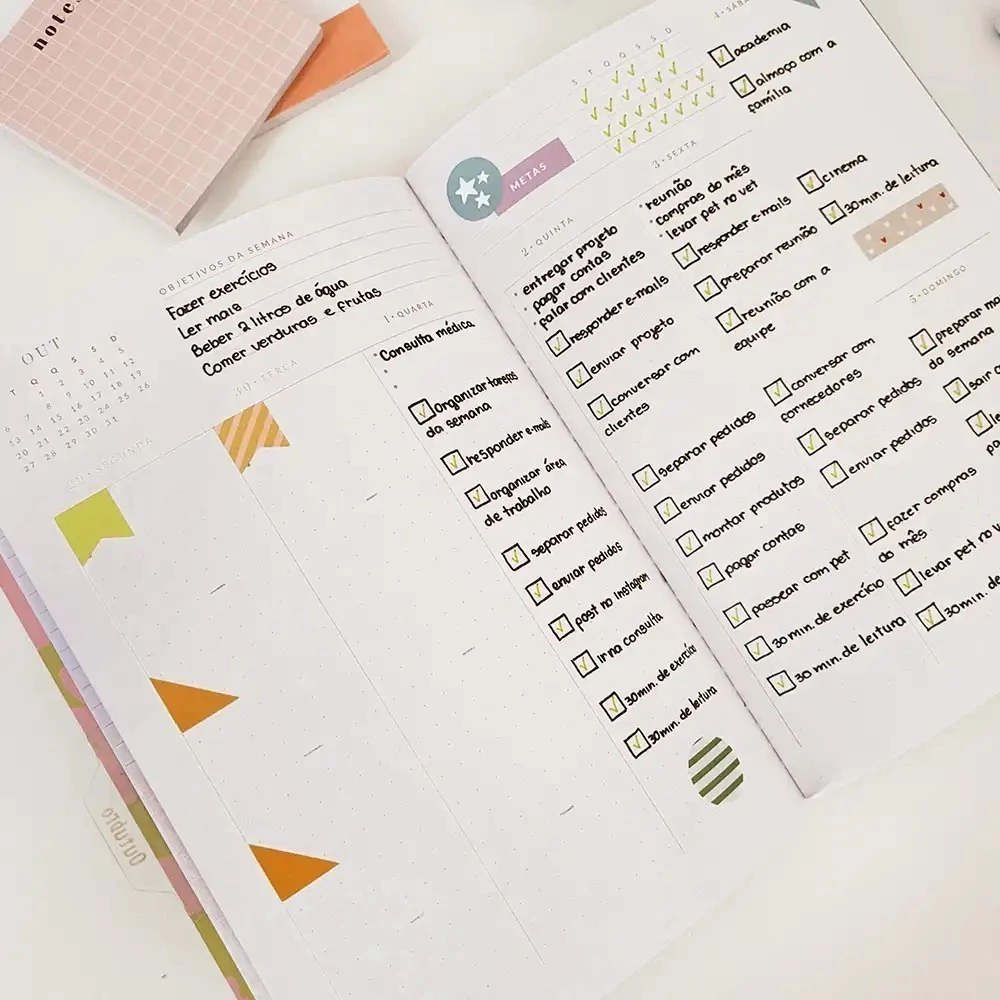 notes
OUT
T Q Q S S D
1 2 3 4 5
6 7 8 9 10 11 12
13 14 15 16 17 18 19
20 21 22 23 24 25 26
27 28 29 30 31
OBJETIVOS DA SEMANA
Fazer exercícios
Ler mais
Beber 2 litros de água
Comer verduras e frutas
SEGUNDA
30 • TERÇA
1 • QUARTA
Consulta médica
Organizar tarefas
da semana
responder e-mails
organizar área
de trabalho
separar pedidos
enviar pedidos
post no instagram
ir na consulta
30min. de exercício
30min. de leitura
Outubro
METAS
S T Q Q S S D
2 • QUINTA
entregar projeto
pagar contas
falar com clientes
responder e-mails
enviar projeto
conversar com
clientes
separar pedidos
enviar pedidos
montar produtos
pagar contas
passear com pet
30 min. de exercício
30 min. de leitura
3 • SEXTA
reunião
compras do mês
levar pet no vet
responder e-mails
preparar reunião
reunião com a
equipe
conversar com
fornecedores
separar pedidos
enviar pedidos
fazer compras
do mês
levar pet no
30min. de
4 • SÁBA
academia
almoço com a
família
cinema
30min. de leitura
5 • DOMINGO
preparar
da semana
sair